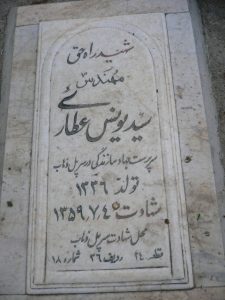 شهید راه حق
مهندس
سید یونس عطاری
سرپرست جهاد سازندگی در سرپل ذهاب
تولد ۱۳۳۶
شهادت ۱۳۵۹،۷،۴
محل شهادت سرپل ذهاب
قطعه ۲۴ ردیف ۳۶ شماره ۱۸